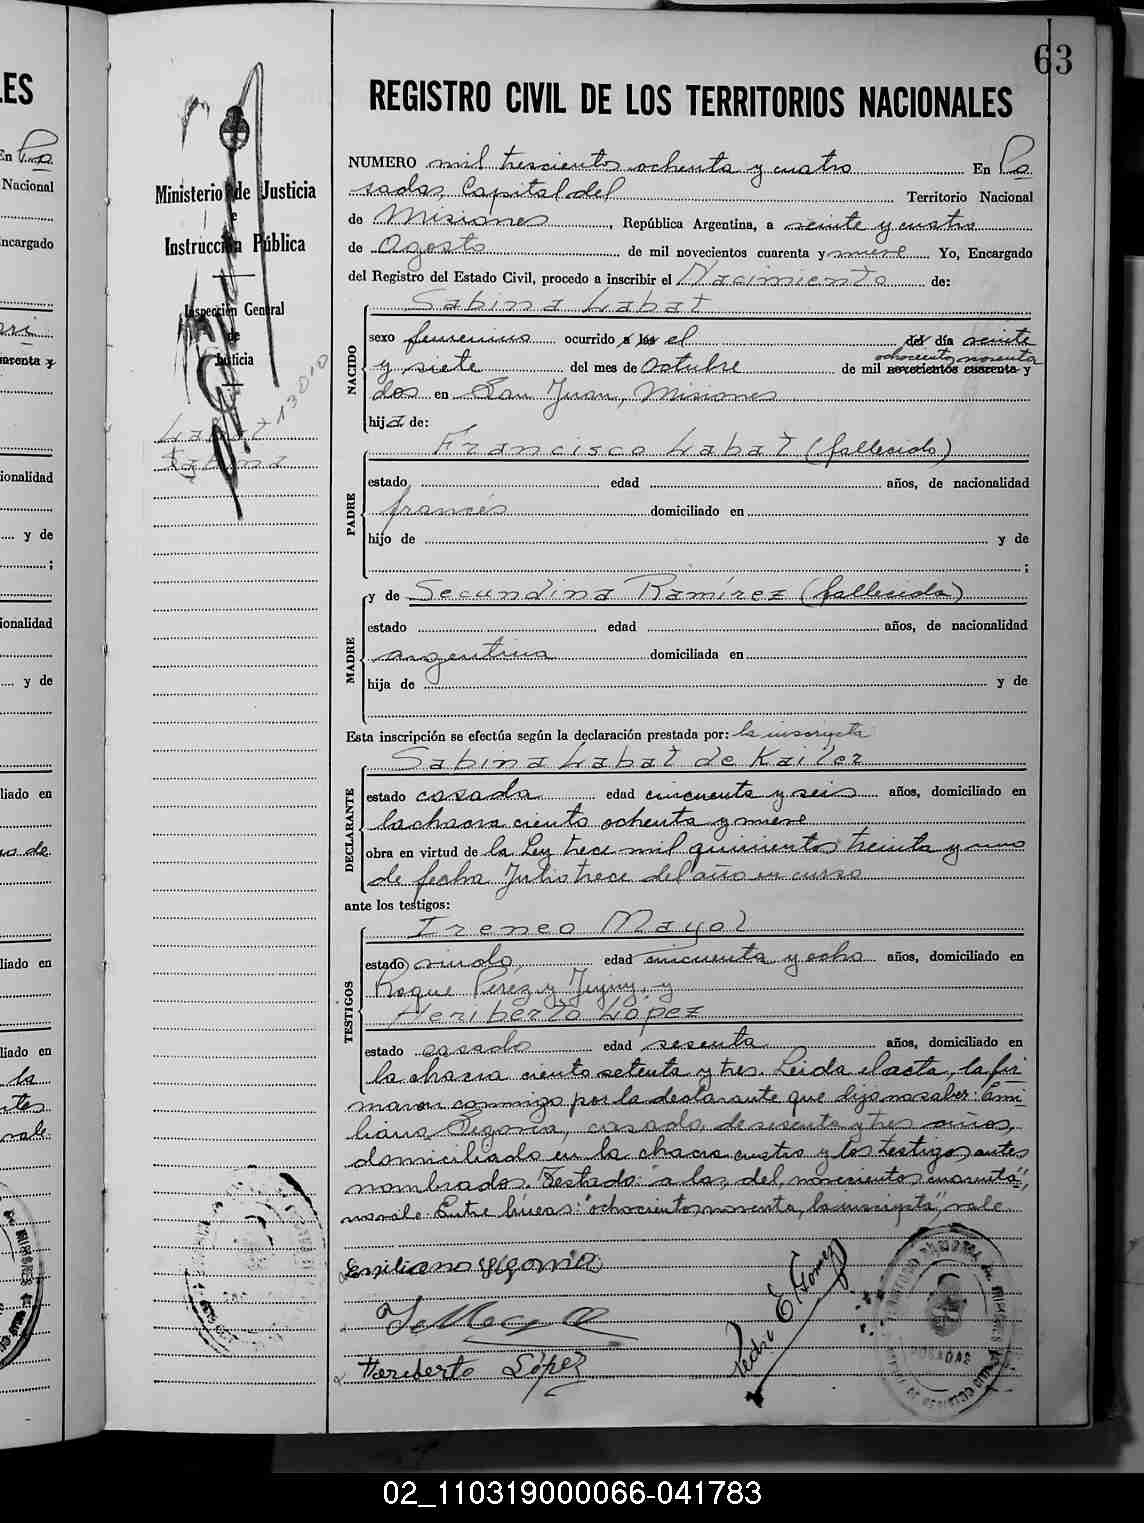 63
REGISTRO CIVIL DE LOS TERRITORIOS NACIONALES
Ministerio de Justicia
e
Instrucción Pública
Inspección General
de
Justicia
13010
Labat
Sabina
NUMERO mil trescientos ochenta y cuatro En Po
sadas, Capital del Territorio Nacional
de Misiones, República Argentina, a veinte y cuatro
de Agosto de mil novecientos cuarenta y nueve Yo, Encargado
del Registro del Estado Civil, procedo a inscribir el Nacimiento de:
Sabina Labat
NACIDO
sexo femenino ocurrido a las el del día veinte
ochocientos noventa
y siete del mes de Octubre de mil novecientos cuarenta y
dos en San Juan, Misiones
hija de:
Francisco Labat (fallecido)
PADRE
estado edad años, de nacionalidad
francés domiciliado en
hijo de y de
;
y de Secundina Ramírez (fallecida)
MADRE
estado edad años, de nacionalidad
argentina domiciliada en
hija de y de
Esta inscripción se efectúa según la declaración prestada por: la inscripta
Sabina Labat de Kailer
DECLARANTE
estado casada edad cincuenta y seis años, domiciliado en
la chacra ciento ochenta y nueve
obra en virtud de la Ley trece mil quinientos treinta y uno
de fecha Julio trece del año en curso
ante los testigos:
Ireneo Mayol
TESTIGOS
estado viudo, edad cincuenta y ocho años, domiciliado en
Roque Perez y Jujuy, y
Heriberto López
estado casado edad sesenta años, domiciliado en
la chacra ciento setenta y tres. Leida el acta, la fir
maron conmigo por la declarante que dijo no saber: Emi-
liano Segovia, casado, de sesenta y tres años,
domiciliado en la chacra cuatro y los testigos antes
nombrados. Testado: "a las, del, novecientos cuarenta",
no vale. Entre líneas: "ochocientos noventa, la inscripta", vale
Emiliano Segovia
Heriberto López
Pedro E Gomez
POSADAS
02_110319000066-041783